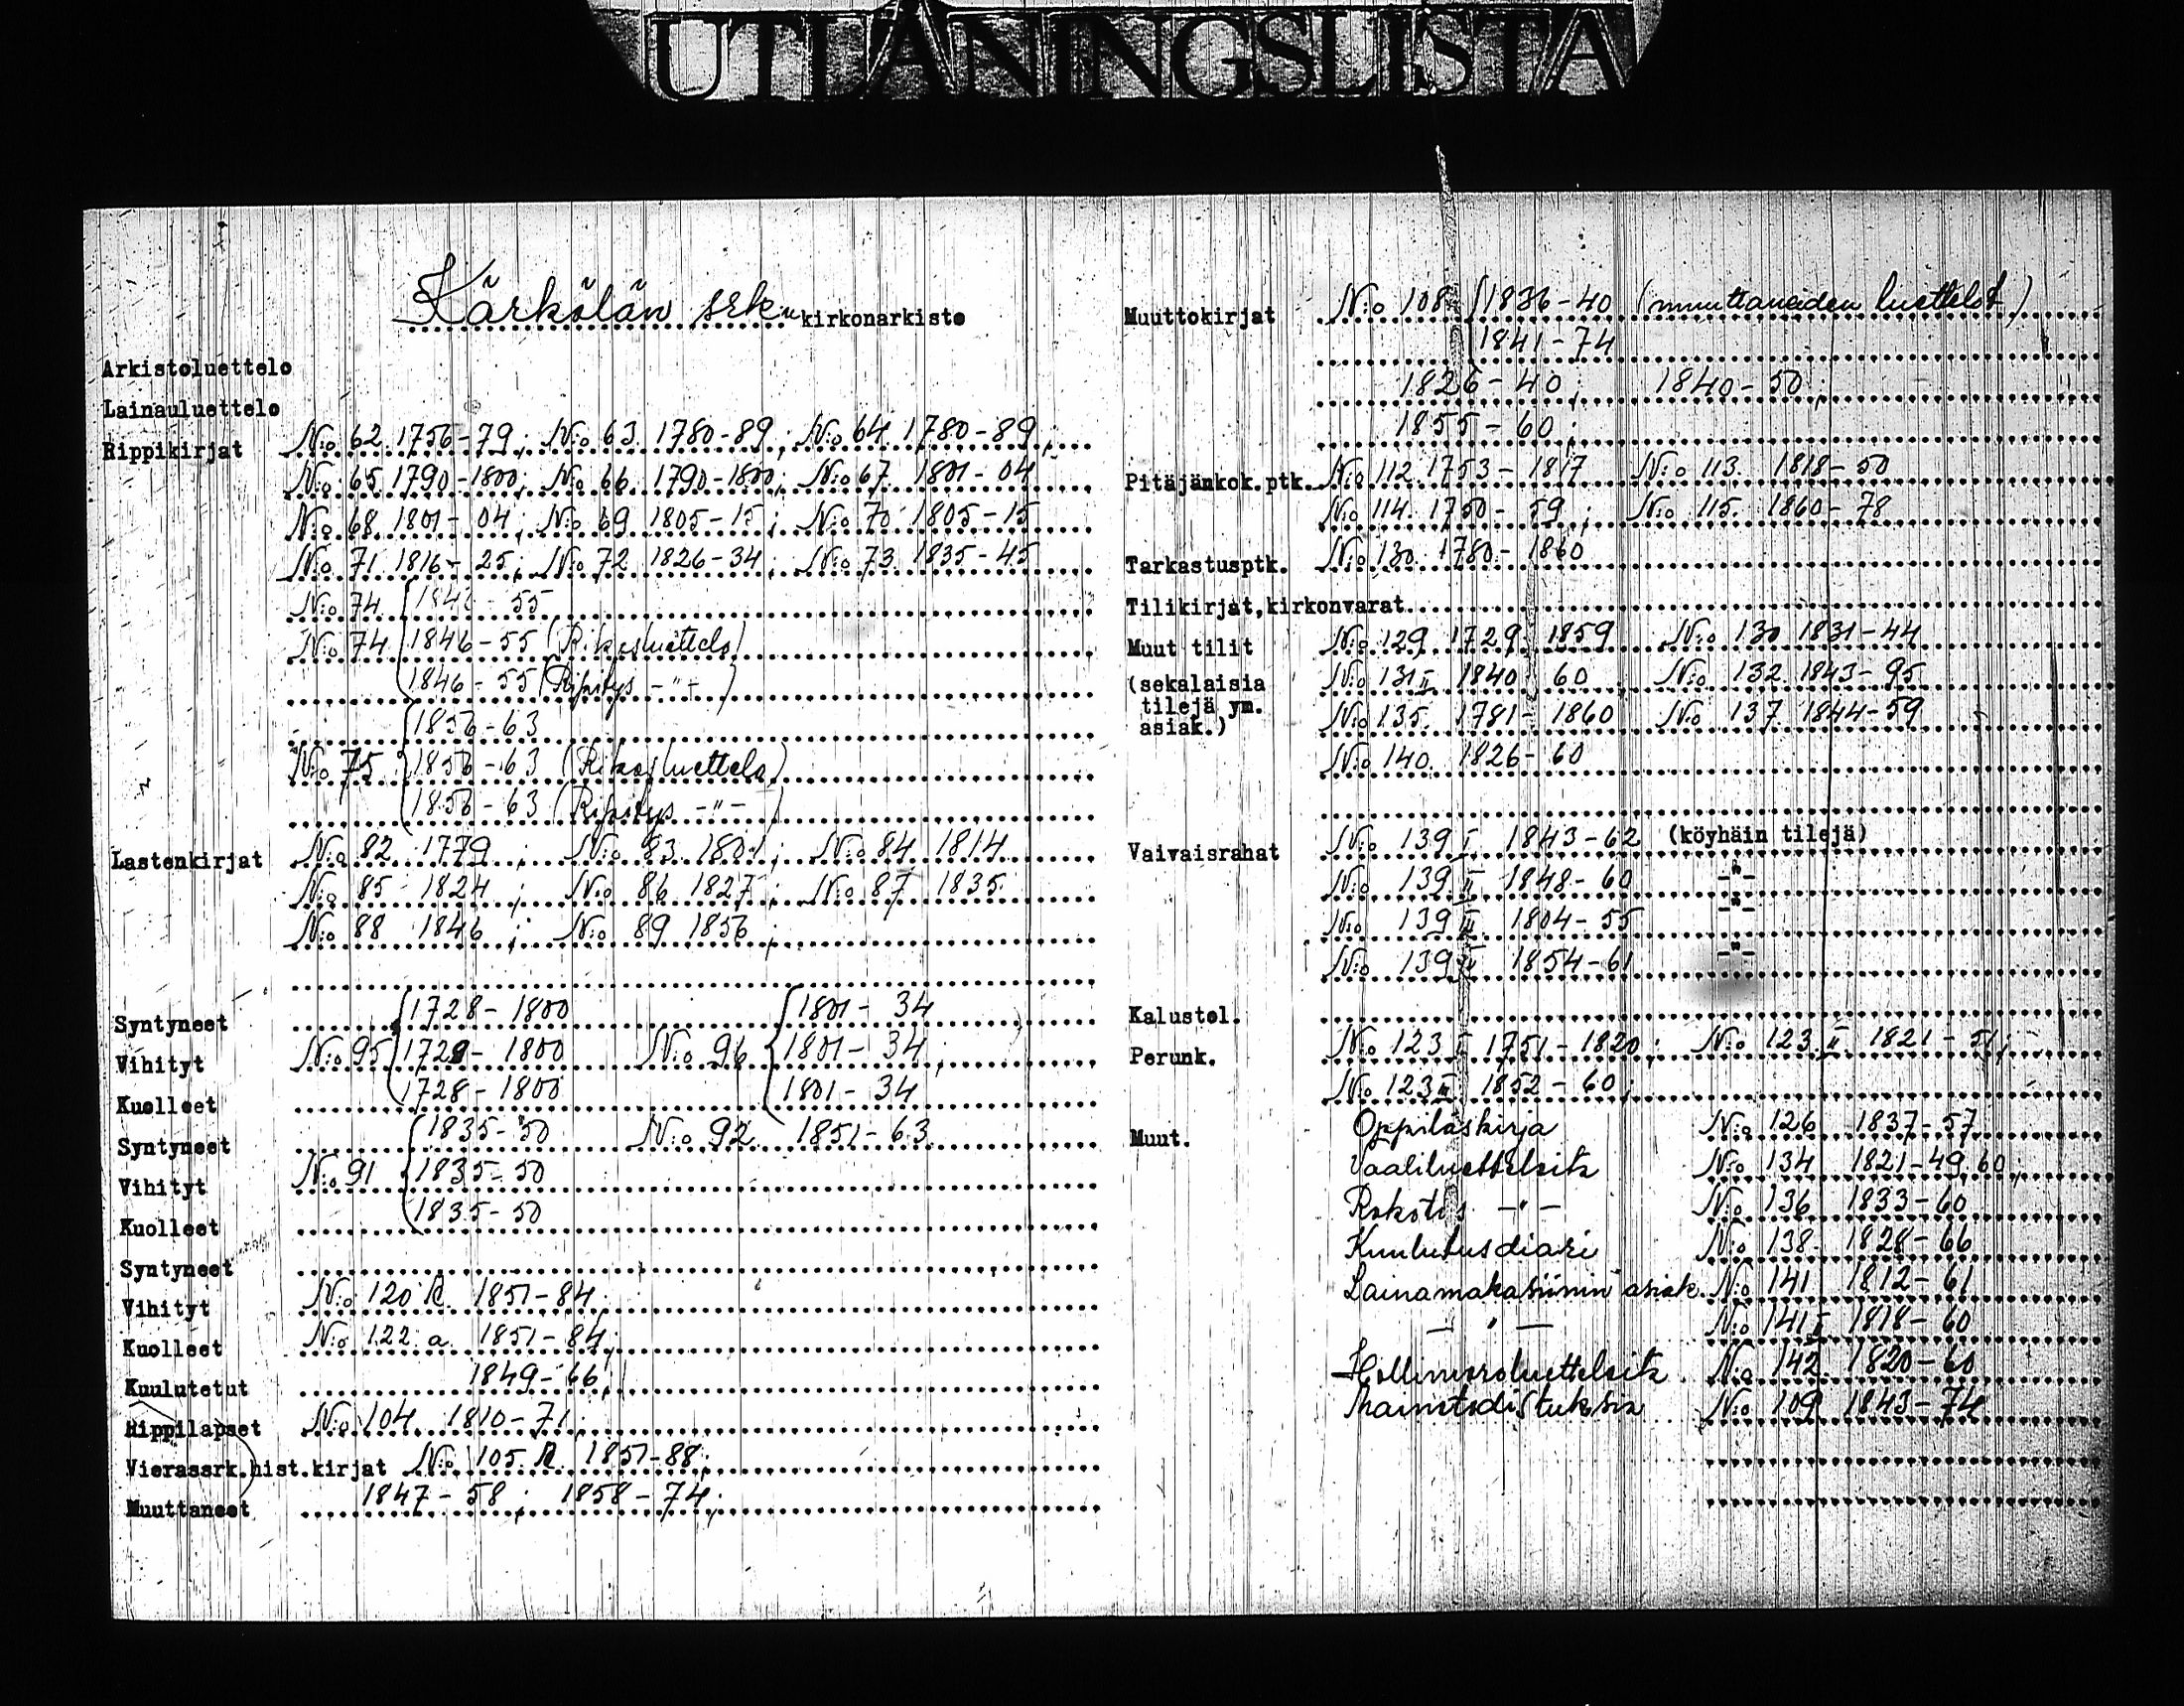 UTLÅNINGSLISTA
Kärkölän srk:n kirkonarkisto
Arkistoluettelo
Lainauluettelo
Rippikirjat N:o 62 1756-79; N:o 63. 1780-89; N:o 64 1780-89;
N:o 65 1790-1800; N:o 66 1790-1800; N:o 67 1801-04
N:o 68 1801-04; N:o 69 1805-15; N:o 70 1805-15
N:o 71 1816-25; N:o 72 1826-34; N:o 73 1835-45
N:o 74 1846-55
N:o 74 1846-55 (Rikosluettelo)
1846-55 (Ripitys -"-)
1856-63
N:o 75 1856-63 (Rikosluettelo)
1856-63 (Ripitys -"-)
Lastenkirjat N:o 82 1779; N:o 83 1801; N:o 84 1814
N:o 85 1824; N:o 86 1827; N:o 87 1835
N:o 88 1846; N:o 89 1856;
Syntyneet 1728-1800 1801-34
Vihityt N:o 95 1728-1800 N:o 96 1801-34;
Kuolleet 1728-1800 1801-34
Syntyneet 1835-50 N:o 92 1851-63
Vihityt N:o 91 1835-50
Kuolleet 1835-50
Syntyneet
Vihityt N:o 120 1851-84
Kuolleet N:o 122 a 1851-84;
Kuulutetut 1849-66;
Rippilapset N:o 104 1810-71;
Vierassrk.hist.kirjat N:o 105 1851-88;
Muuttaneet 1847-58; 1858-74;
Muuttokirjat N:o 108 1836-40 (muuttaneiden luettelot)
1841-74
1826-40; 1840-50;
1855-60;
Pitäjänkok.ptk. N:o 112 1753-1817 N:o 113. 1818-50
N:o 114. 1750-59; N:o 115. 1860-78
Tarkastusptk. N:o 130 1780-1860
Tilikirjat,kirkonvarat
Muut tilit N:o 129 1729 1859 N:o 130 1831-44
(sekalaisia N:o 131 II 1840 60 N:o 132 1843-95
tilejä ym.
asiak.) N:o 135. 1781-1860 N:o 137 1844-59
N:o 140. 1826-60
Vaivaisrahat N:o 139 I 1843-62 (köyhäin tilejä)
N:o 139 II 1848-60 -"-
N:o 139 III 1804-55 -"-
N:o 139 IV 1854-61 -"-
Kalustol.
Perunk. N:o 123 I 1751-1820; N:o 123 II 1821-51;
N:o 123 III 1852-60;
Muut. Oppilaskirja N:o 126 1837-57
Vaaliluetteloita N:o 134 1821-49, 60;
Rokotus -"- N:o 136 1833-60
Kuulutusdiari N:o 138 1828-66
Lainamakasiinin asiak. N:o 141 1812-61
-"- N:o 141 I 1818-60
Hollinvoroluetteloita N:o 142 1820-60
Mainetodistuksia N:o 109 1843-74